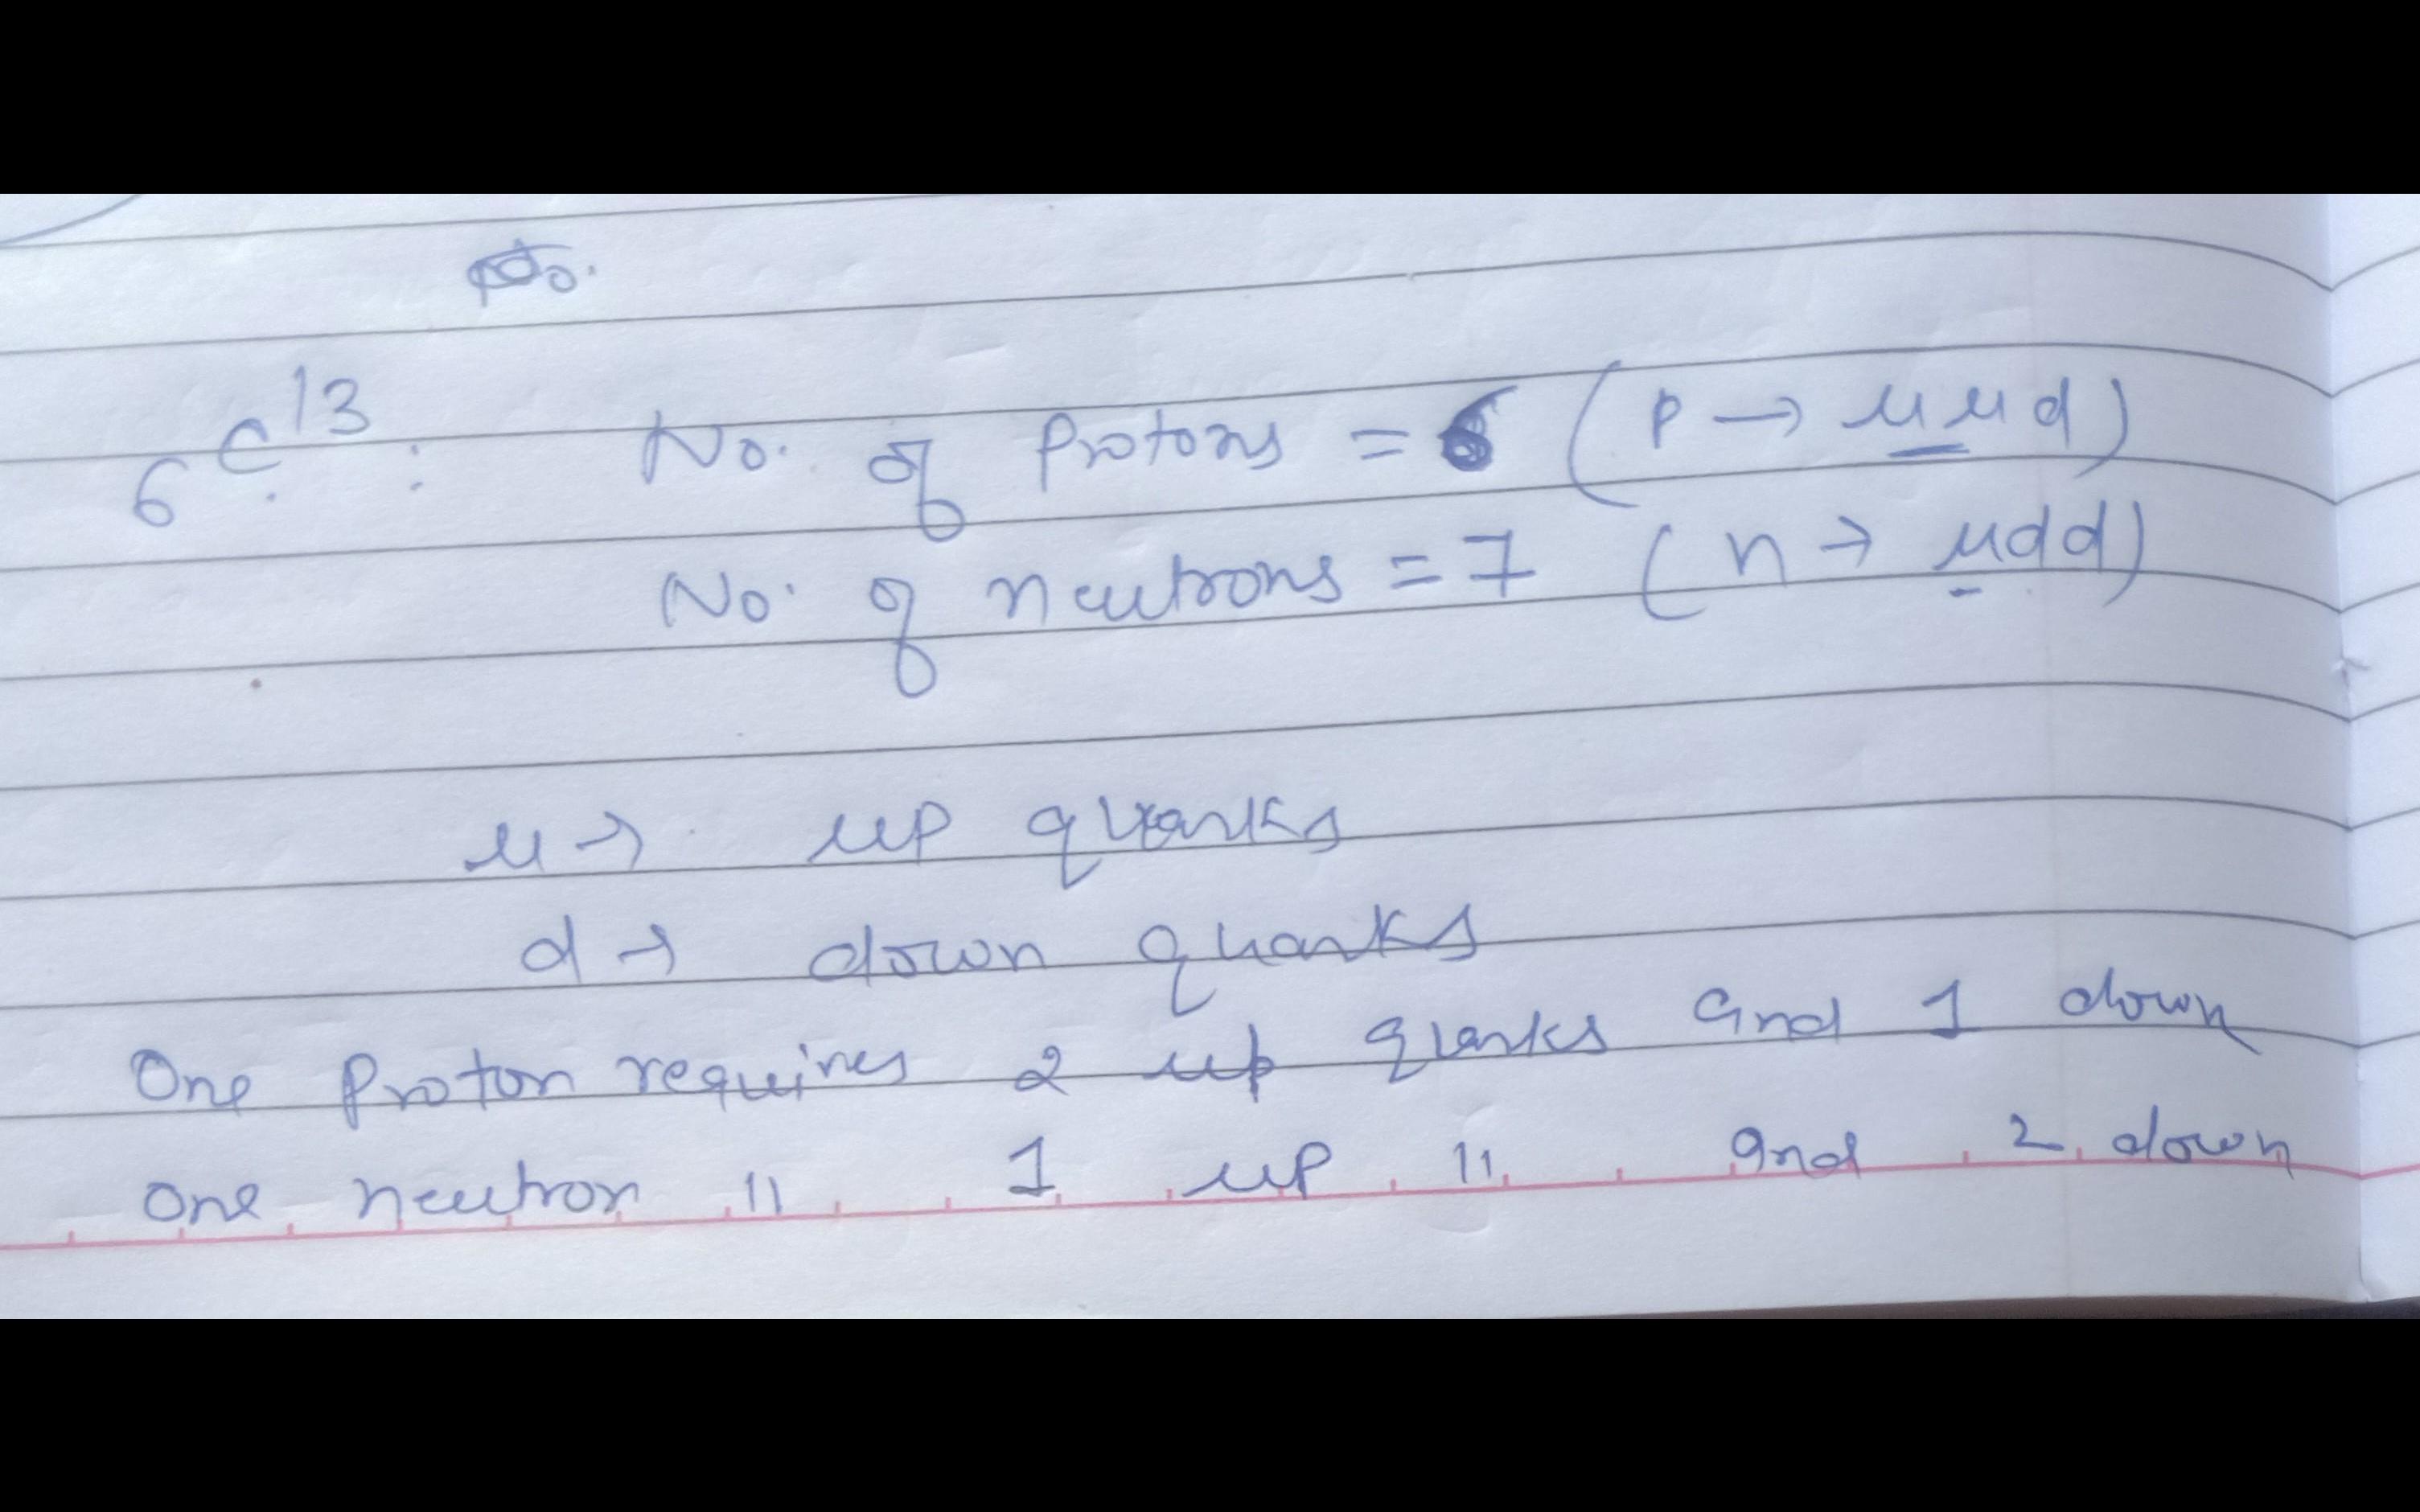 No.
6C13 : No. of Protons = 6 (P → uud)
No. of neutrons = 7 (n → udd)
u → up quarks
d → down quarks
One Proton requires 2 up quarks and 1 down
One neutron " 1 up " and 2 down